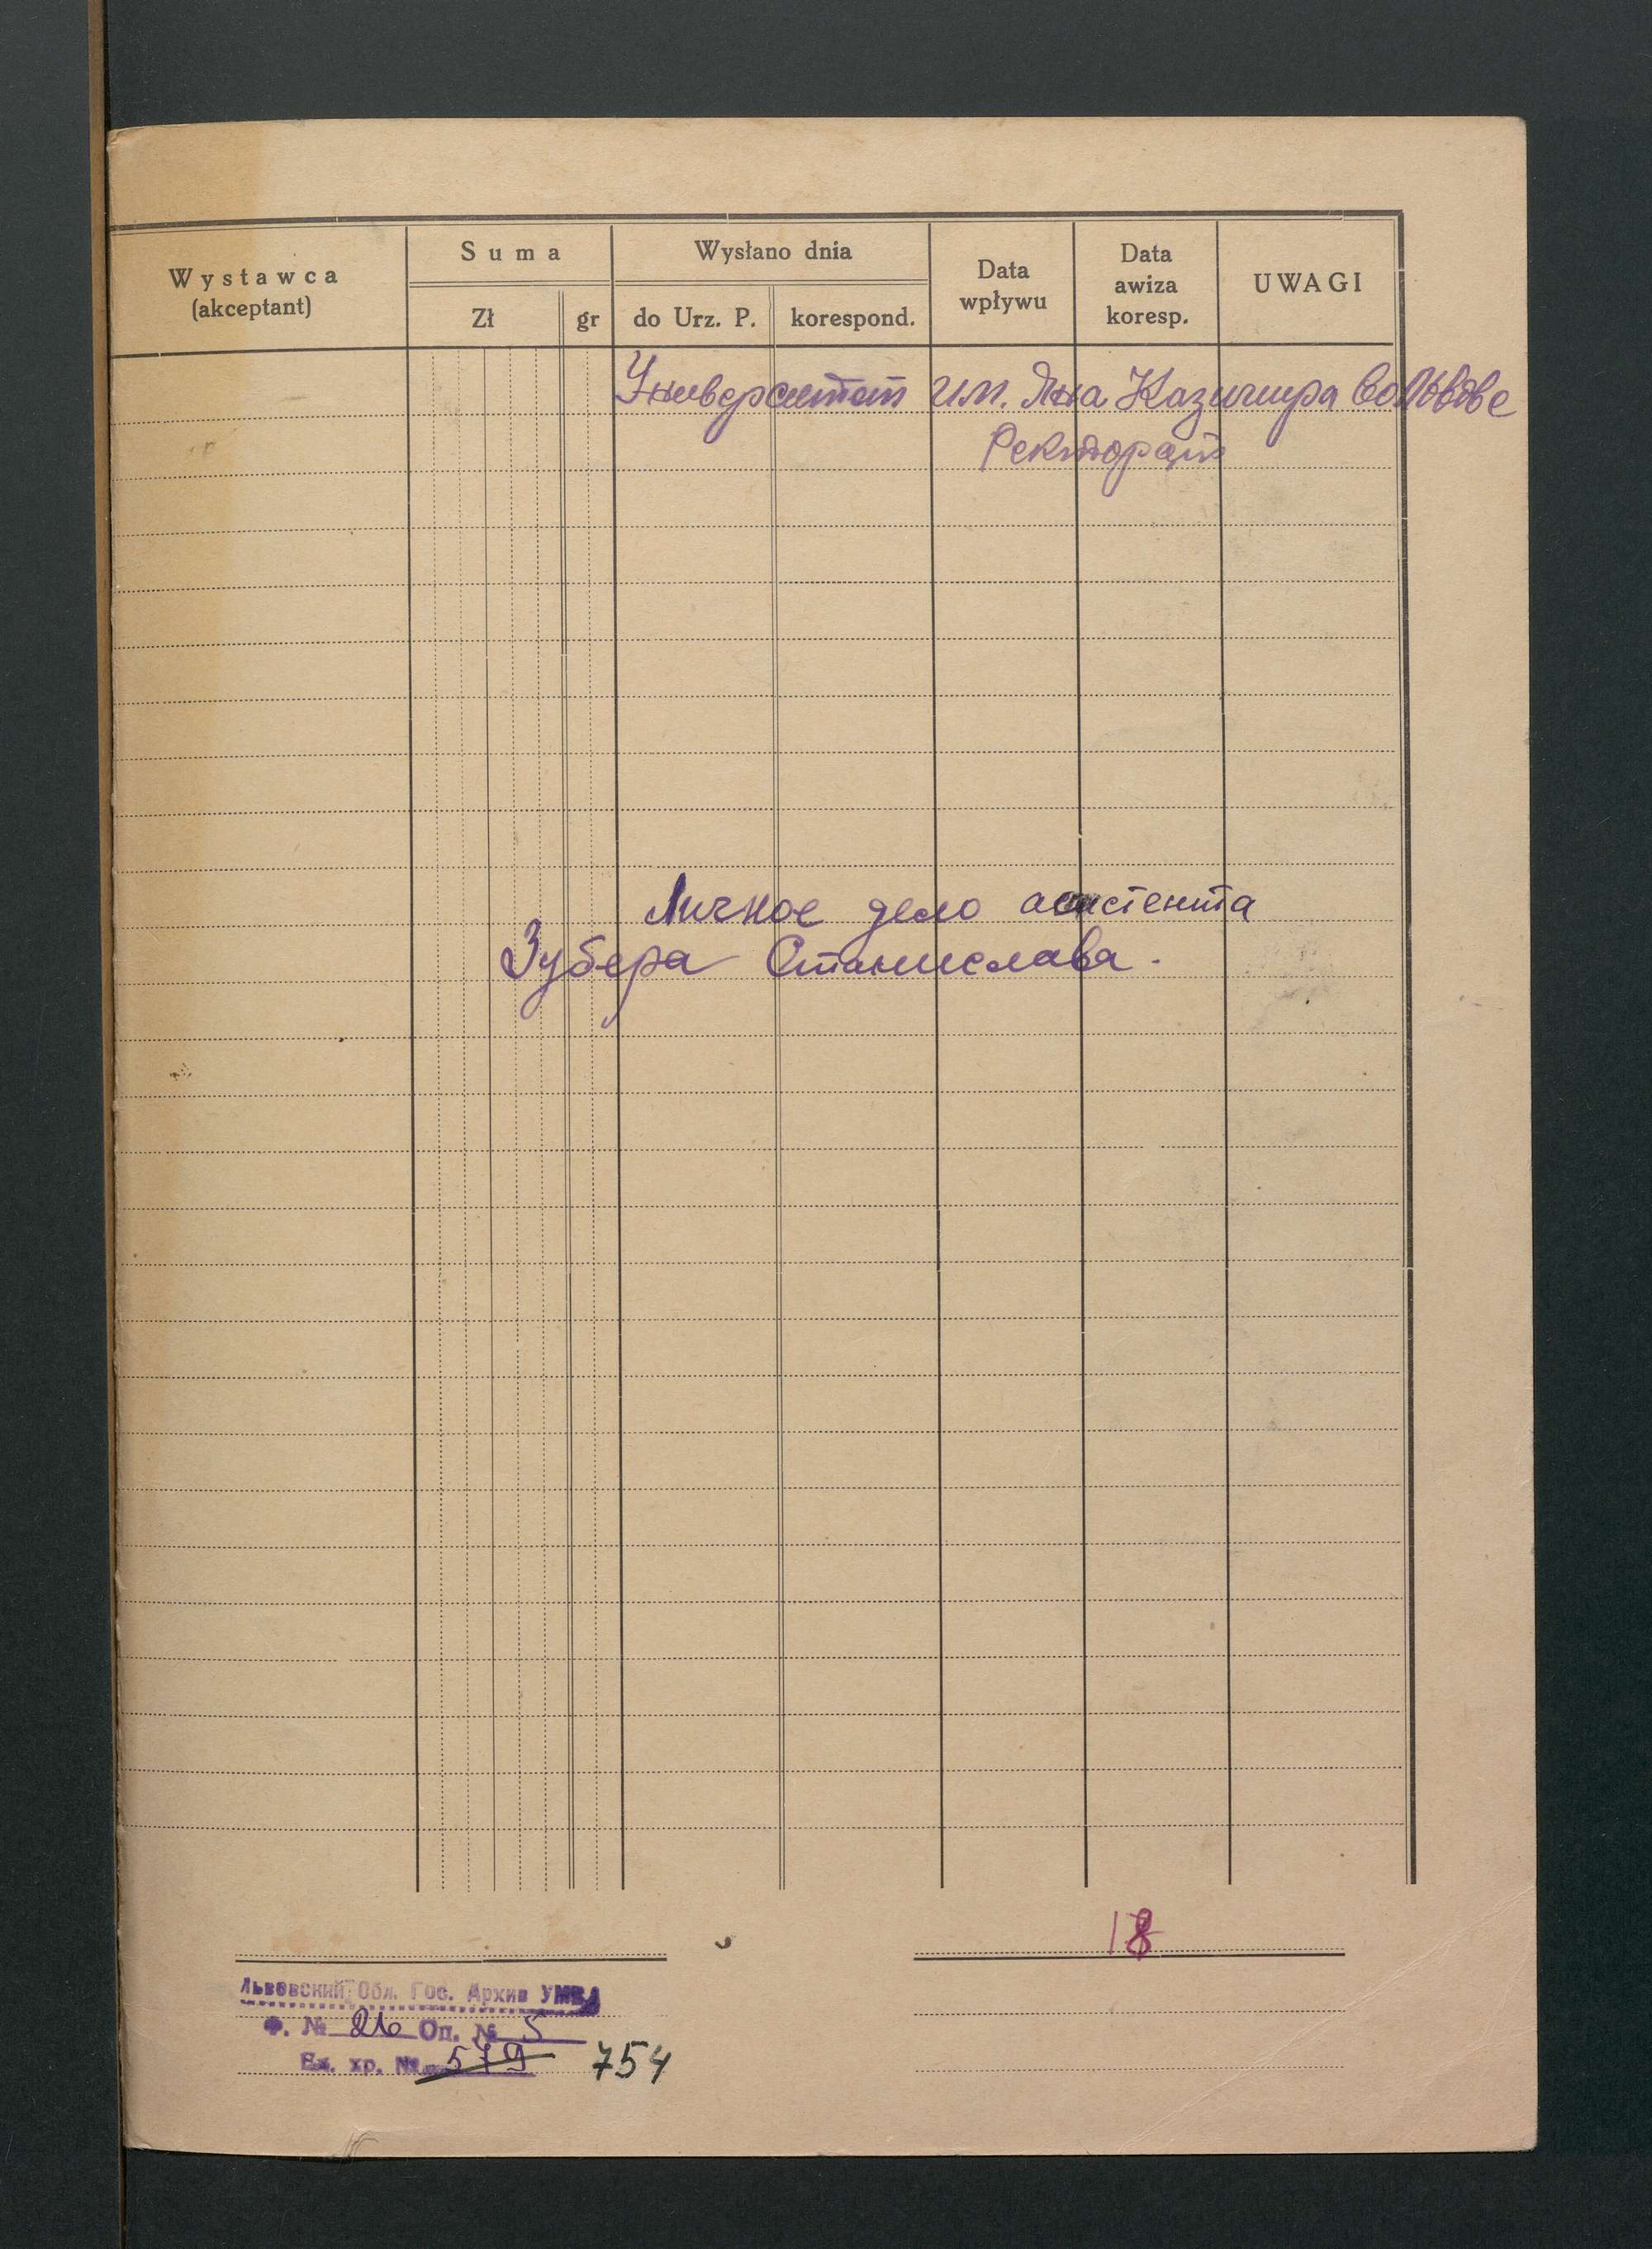 Wystawca
(akceptant)
Suma
Zł
gr
Wysłano dnia
do Urz. P.
korespond.
Data
wpływu
Data
awiza
koresp.
UWAGI
Университет им. Яна Казимира во Львове
Ректорат
Личное дело асистента
Зубера Станислава.
18
Львовский Обл. Гос. Архив УМВД
Ф. № 26 Оп. № 5
Ед. хр. № 579 754